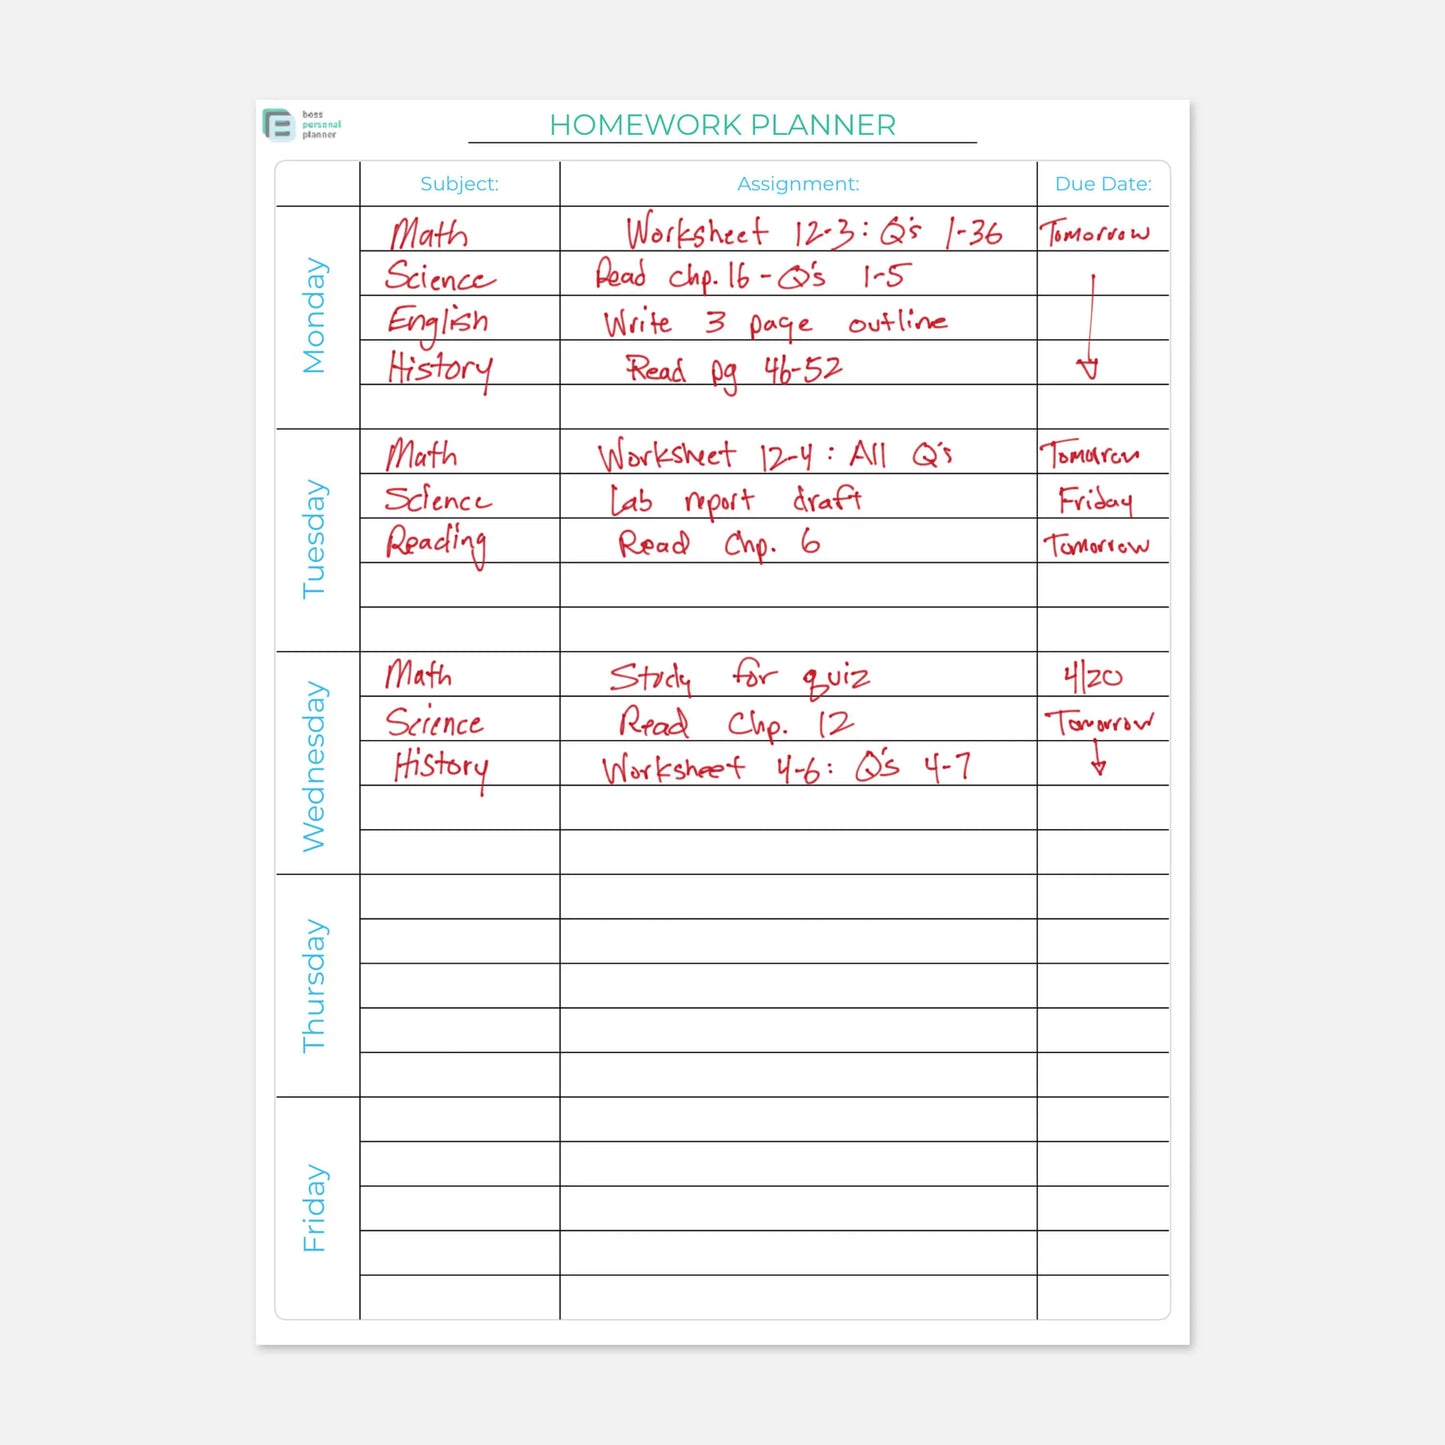 boss
personal
planner
HOMEWORK PLANNER
Subject: Assignment: Due Date:
Monday
Math Worksheet 12-3: Q's 1-36 Tomorrow
Science Read chp. 16 - Q's 1-5
English Write 3 page outline
History Read pg 46-52
Tuesday
Math Worksheet 12-4: All Q's Tomorrow
Science Lab report draft Friday
Reading Read Chp. 6 Tomorrow
Wednesday
Math Study for quiz 4/20
Science Read Chp. 12 Tomorrow
History Worksheet 4-6: Q's 4-7
Thursday
Friday